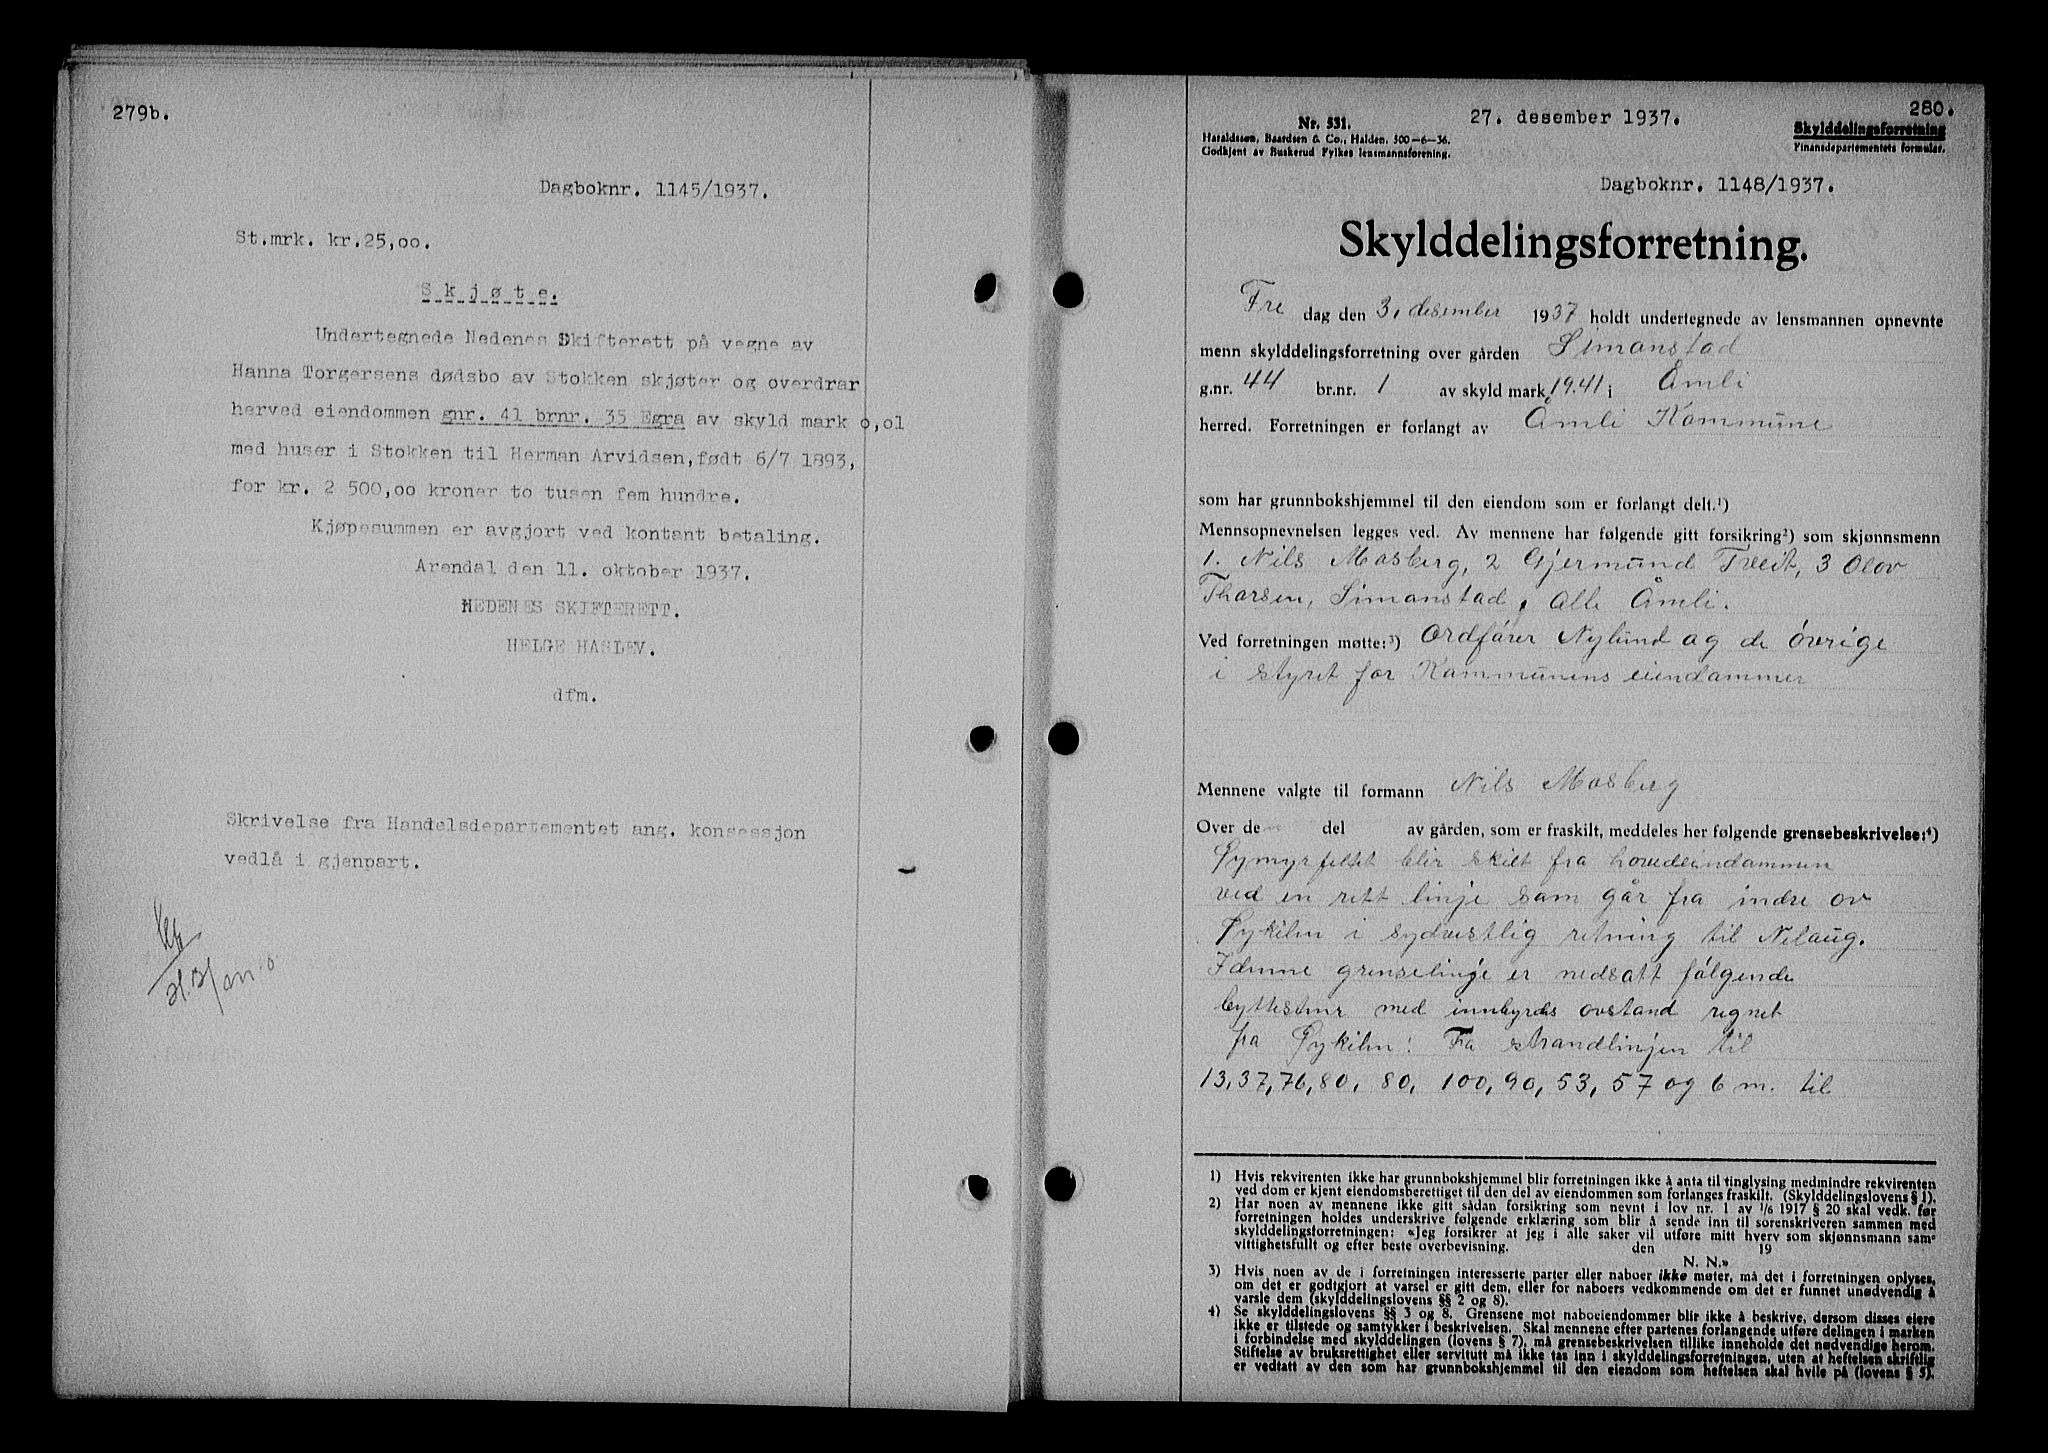 279b.
Dagboknr. 1145/1937.
St.mrk. kr.25,oo.
Skjøte.
Undertegnede Nedenes Skifterett på vegne av
Hanna Torgersens dødsbo av Stokken skjøter og overdrar
herved eiendommen gnr. 41 brnr. 35 Egra av skyld mark o,ol
med huser i Stokken til Herman Arvidsen,født 6/7 1893,
for kr. 2 500,oo kroner to tusen fem hundre.
Kjøpesummen er avgjort ved kontant betaling.
Arendal den 11. oktober 1937.
NEDENES SKIFTERETT.
HELGE HASLEV.
dfm.
Skrivelse fra Handelsdepartementet ang. konsessjon
vedlå i gjenpart.
280.
Nr. 531.
27. desember 1937.
Haraldssøn, Baardsen & Co., Halden. 500-6-36.
Godkjent av Buskerud Fylkes lensmannsforening.
Skylddelingsforretning
Finansdepartementets formular.
Dagboknr. 1148/1937.
Skylddelingsforretning.
Fre dag den 3. desember 1937 holdt undertegnede av lensmannen opnevnte
menn skylddelingsforretning over gården Simonstad
g.nr. 44 br.nr. 1 av skyld mark 19.41 i Åmli
herred. Forretningen er forlangt av Åmli Kommune
som har grunnbokshjemmel til den eiendom som er forlangt delt.¹)
Mennsopnevnelsen legges ved. Av mennene har følgende gitt forsikring²) som skjønnsmenn
1. Nils Mosberg, 2 Gjermund Tveit, 3 Olov
Thorsen, Simonstad, alle Åmli.
Ved forretningen møtte:³) Ordfører Nylund og de øvrige
i styret for Kommunens eiendommer
Mennene valgte til formann Nils Mosberg
Over de del av gården, som er fraskilt, meddeles her følgende grensebeskrivelse:⁴)
Øymyrfeltet blir skilt fra hovedeiendommen
ved en rett linje som går fra indre ov
Øykiln i sydvestlig retning til Nelaug.
I denne grenselinje er nedsatt følgende
byttestener med innbyrdes ovstand regnet
fra Øykiln: Fra strandlinjen til
13, 37, 76, 80, 80, 100, 90, 53, 57 og 6 m. til
1) Hvis rekvirenten ikke har grunnbokshjemmel blir forretningen ikke å anta til tinglysing medmindre rekvirenten
ved dom er kjent eiendomsberettiget til den del av eiendommen som forlanges fraskilt. (Skylddelingslovens § 1).
2) Har noen av mennene ikke gitt sådan forsikring som nevnt i lov nr. 1 av 1/6 1917 § 20 skal vedk. før
forretningen holdes underskrive følgende erklæring som blir å sende inn til sorenskriveren sammen med
skylddelingsforretningen: «Jeg forsikrer at jeg i alle saker vil utføre mitt hverv som skjønnsmann sam-
vittighetsfullt og efter beste overbevisning. den 19
N. N.»
3) Hvis noen av de i forretningen interesserte parter eller naboer ikke møter, må det i forretningen oplyses,
om det er godtgjort at varsel er gitt dem, eller for naboers vedkommende om det er funnet unødvendig å
varsle dem (skylddelingslovens §§ 2 og 8).
4) Se skylddelingslovens §§ 3 og 8. Grensene mot naboeiendommer blir ikke å beskrive, dersom disses eiere
ikke er tilstede og samtykker i beskrivelsen. Skal mennene efter partenes forlangende utføre delingen i marken
i forbindelse med skylddelingen (lovens § 7), må grensebeskrivelsen tillike inneholde det nødvendige herom.
Stiftelse av bruksrettighet eller servitutt må ikke tas inn i skylddelingsforretningen, uten at heftelsen skriftlig
er vedtatt av den som har grunnbokshjemmel til den eiendom som heftelsen skal hvile på (lovens § 5).